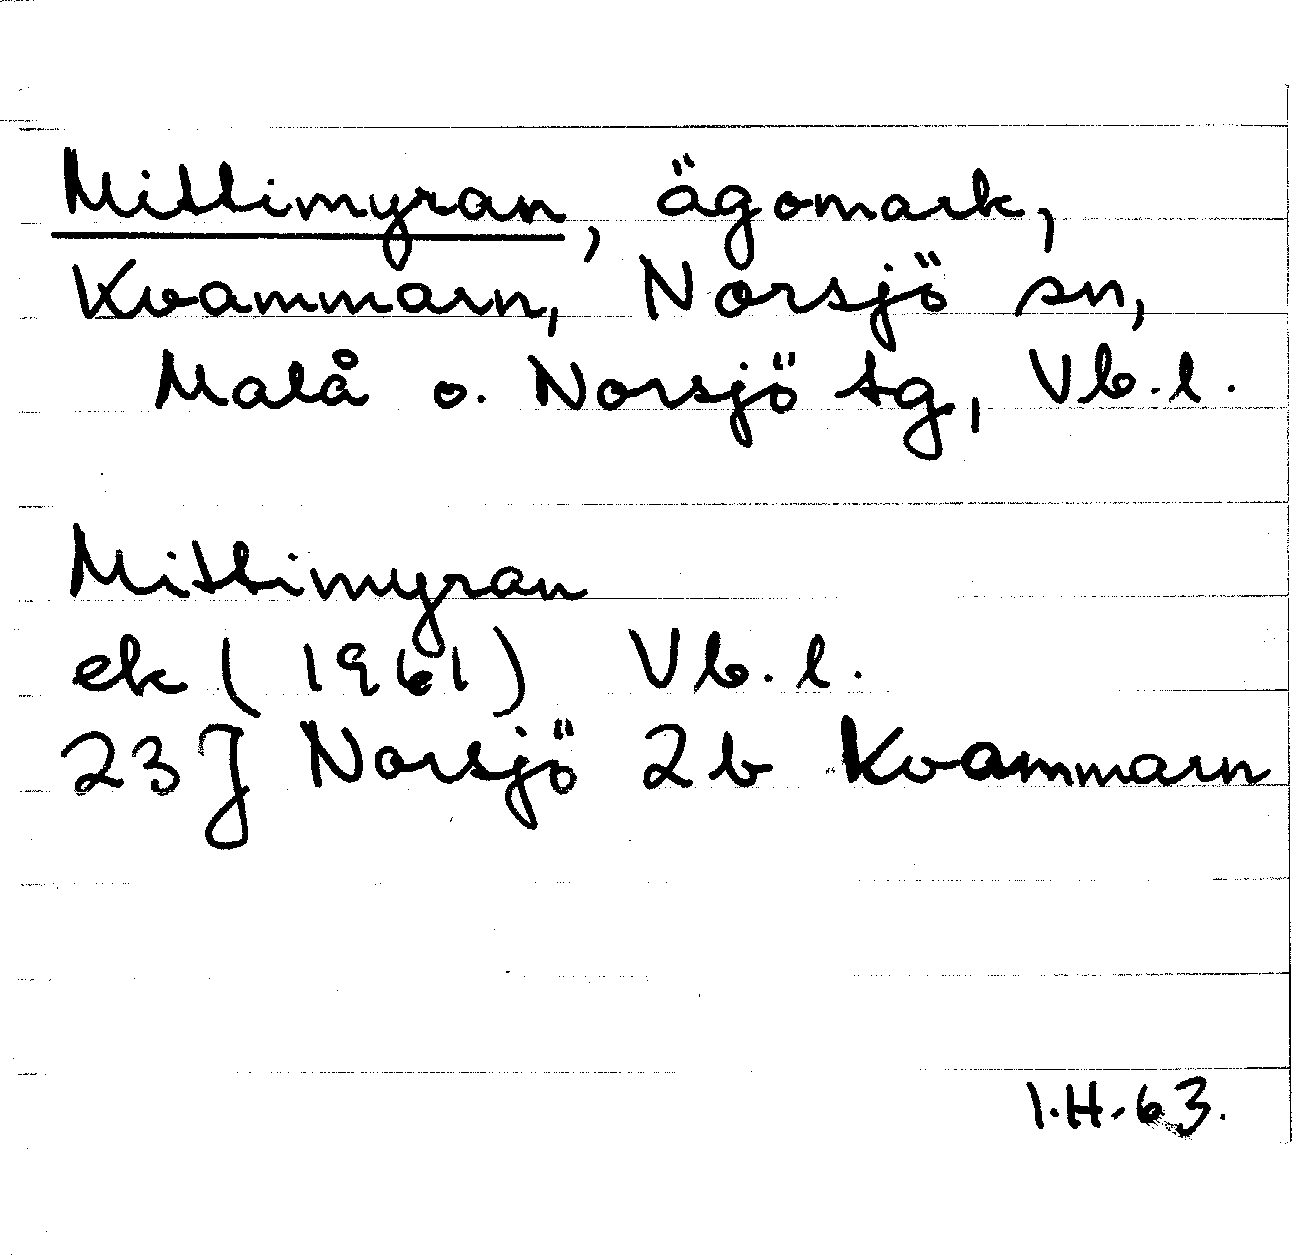 Mittimyran, ägomark,
Kvammarn, Norsjö sn,
Malå o. Norsjö tg, Vb.l.
Mittimyran
ek (1961) Vb.l.
23 J Norsjö 2b Kvammarn
I.H.63.